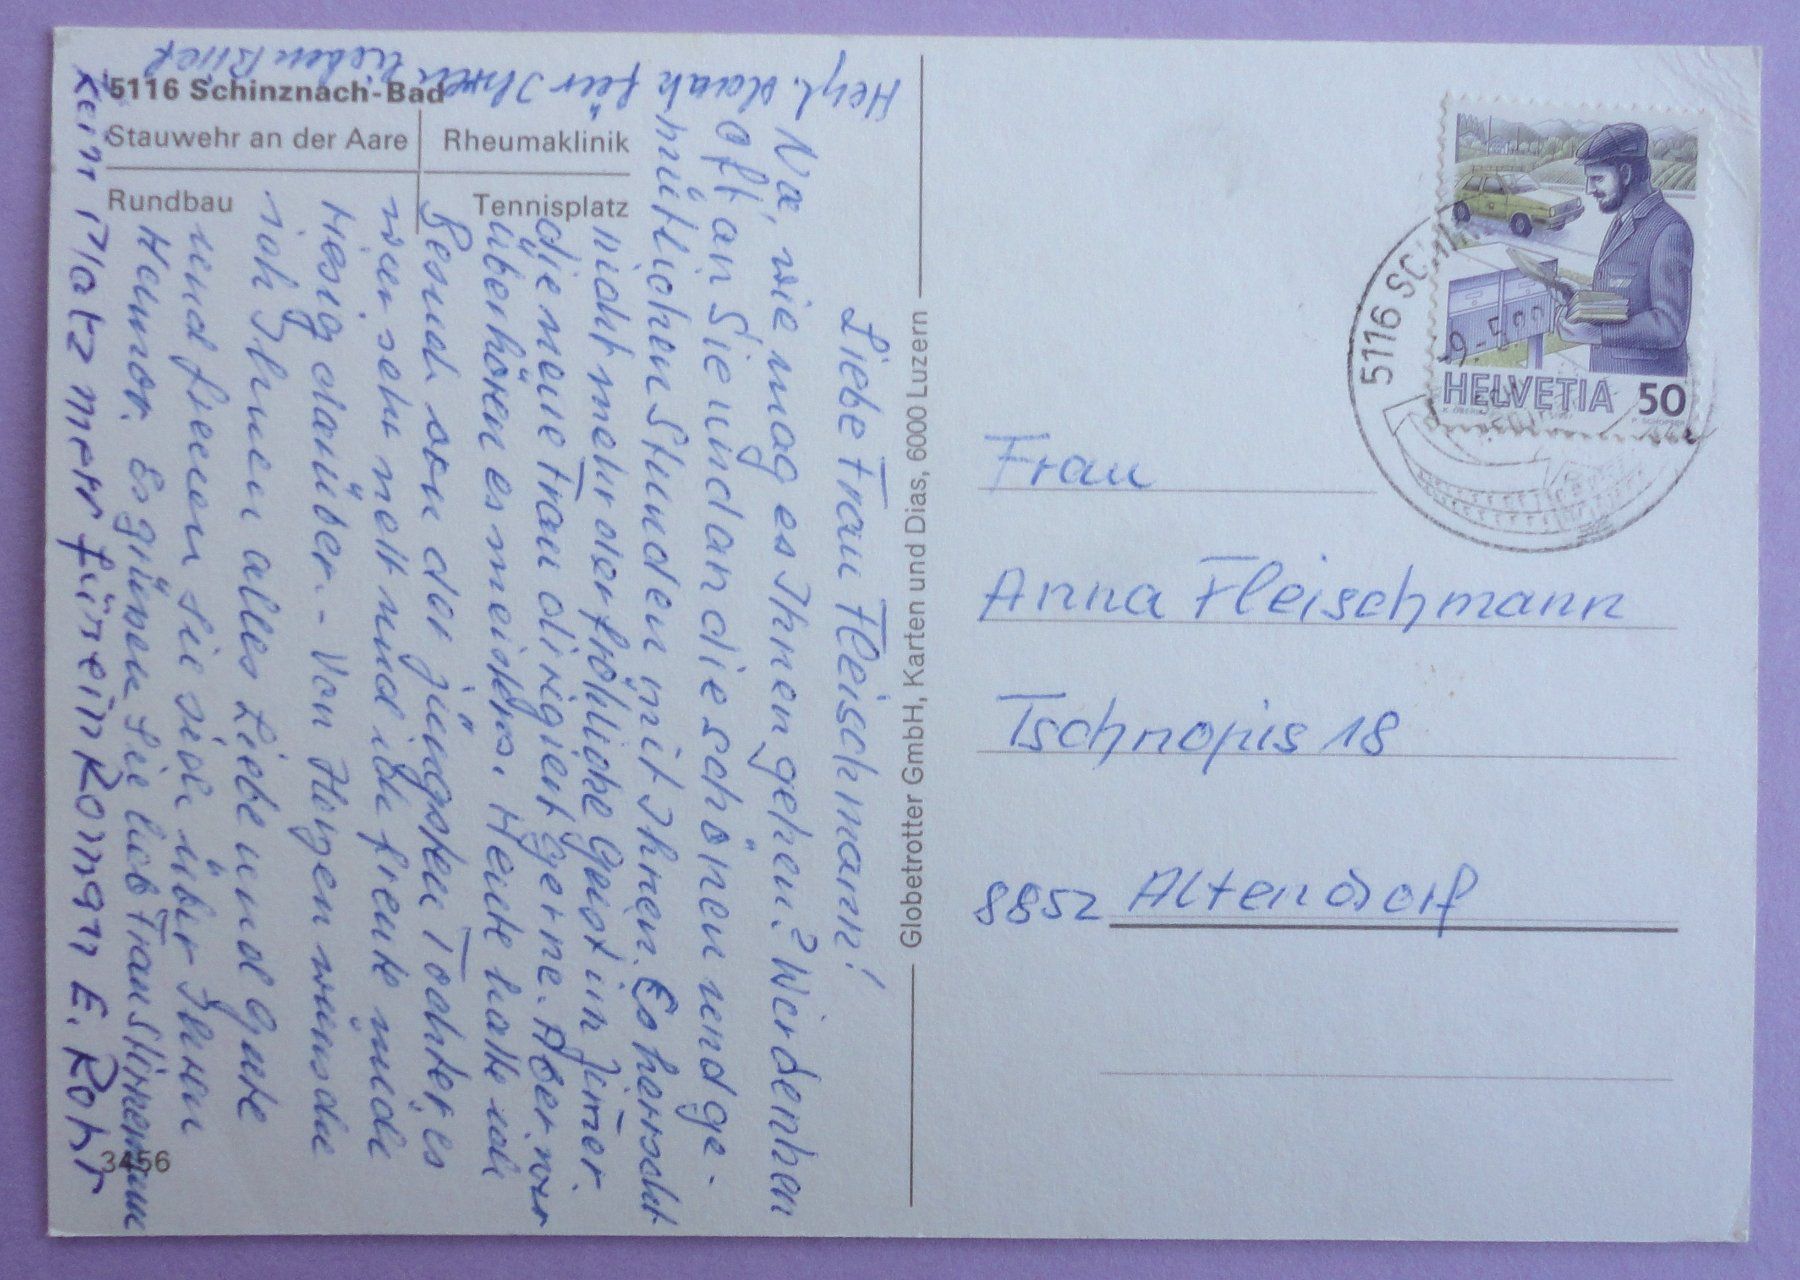 5116 Schinznach-Bad
Stauwehr an der Aare
Rheumaklinik
Rundbau
Tennisplatz
3456
Globetrotter GmbH, Karten und Dias, 6000 Luzern
Herzl. Dank für Ihren lieben Brief
Liebe Frau Fleischmann!
Na, wie mag es Ihnen gehen? Wir denken
oft an Sie und an die schönen und ge-
mütlichen Stunden mit Ihnen. Es herrscht
nicht mehr der fröhliche Geist im Zimer.
die neue Frau dirigiert gerne. Aber wir
überhören es meistens. Heute hatte ich
Besuch von der jüngsten Tochter, es
war sehr nett und ich freute mich
riesig darüber. - Von Herzen wünsche
ich Ihnen alles Liebe und Gute
und freuen Sie sich über Ihren
Humor. Es grüssen Sie lieb Frau
Kein Platz mehr für ein Roman E. Rohr
Frau
Anna Fleischmann
Tschnopis 18
8852 Altendorf
HELVETIA 50
5116